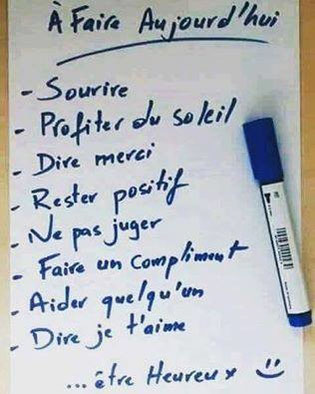 À Faire Aujourd'hui
- Sourire
- Profiter du soleil
- Dire merci
- Rester positif
- Ne pas juger
- Faire un compliment
- Aider quelqu'un
- Dire je t'aime
...être Heureux :)